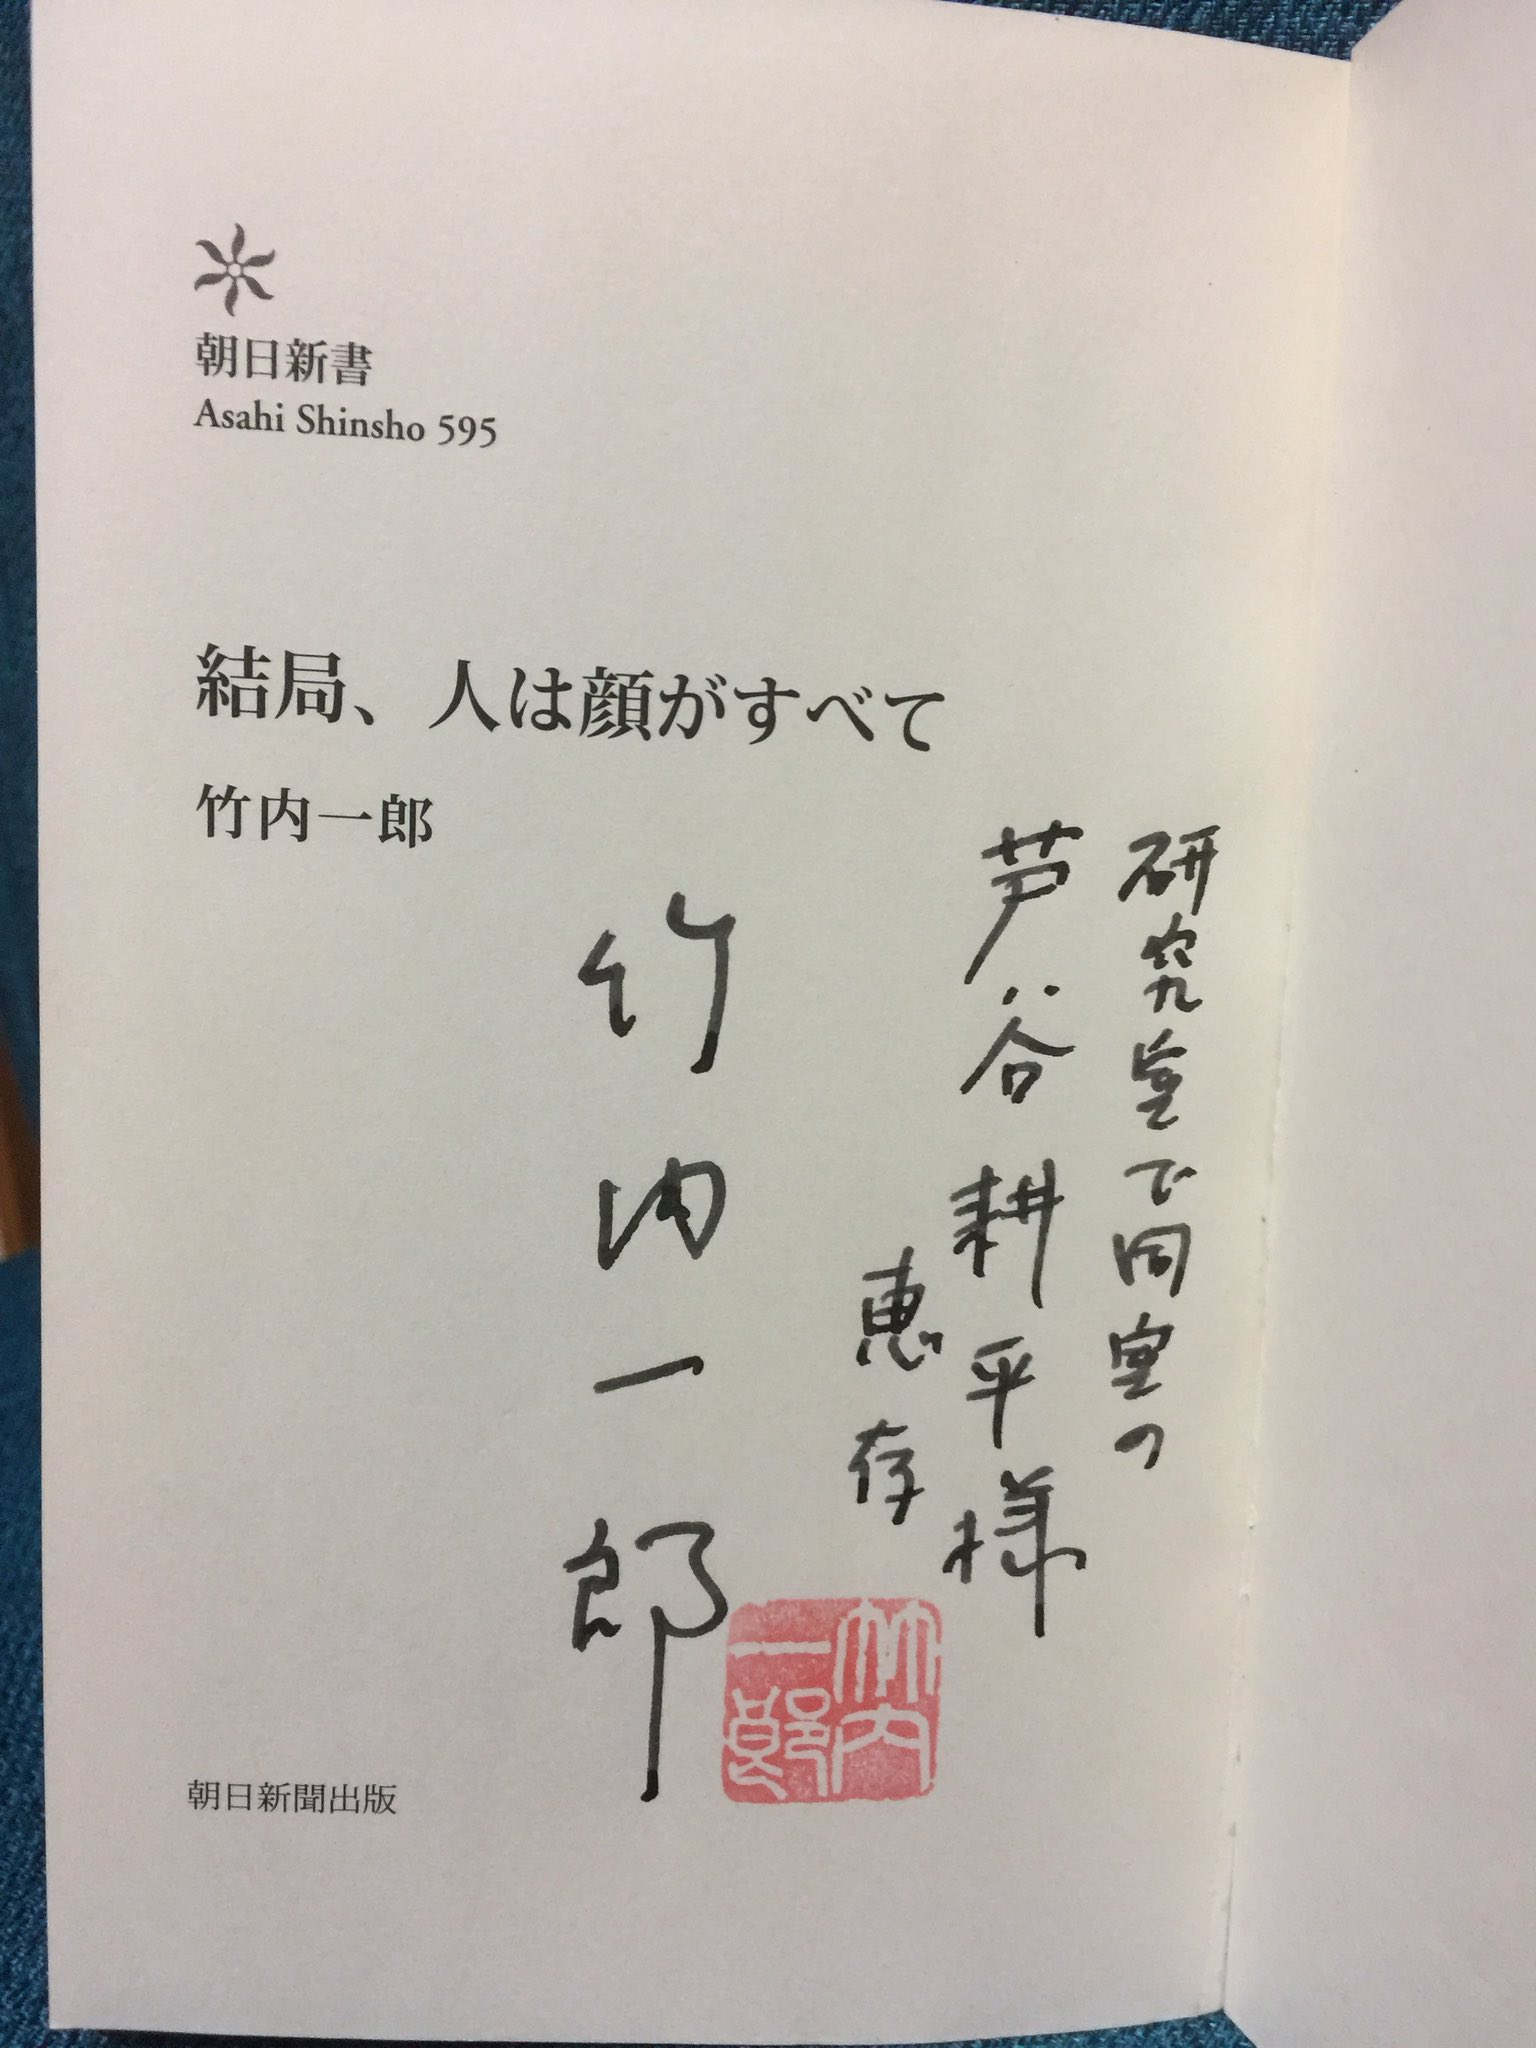 朝日新書
Asahi Shinsho 595
結局、人は顔がすべて
竹内一郎
研究室で同室の
芦谷耕平様
恵存
竹内一郎
竹内
一郎
朝日新聞出版